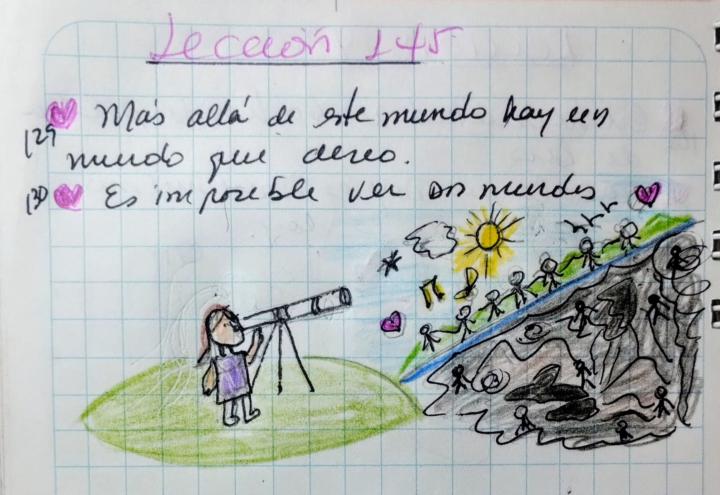 Lección 145
129 Más allá de este mundo hay un
mundo que deseo.
130 Es imposible ver dos mundos